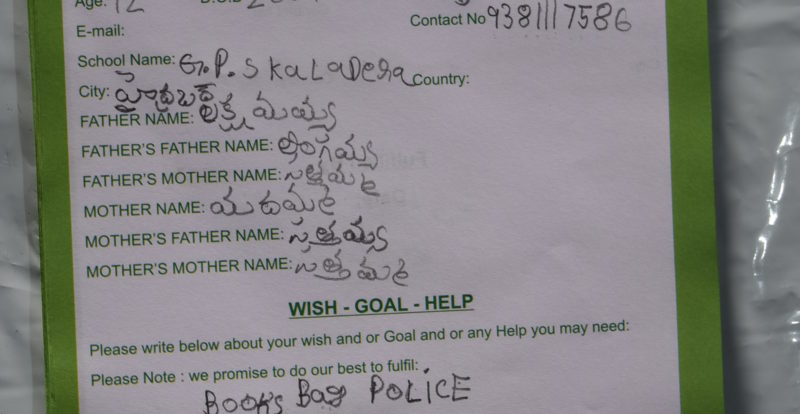 Age: 12
E-mail: Contact No 9381117586
School Name: G.P.S KALADERA Country:
City: హైద్రబాద్
FATHER NAME: లక్ష్మయ్య
FATHER'S FATHER NAME: లింగయ్య
FATHER'S MOTHER NAME:
MOTHER NAME:
MOTHER'S FATHER NAME: సత్తయ్య
MOTHER'S MOTHER NAME: సత్తమ్మ
WISH - GOAL - HELP
Please write below about your wish and or Goal and or any Help you may need:
Please Note : we promise to do our best to fulfil:
BOOKS Bag POLICE